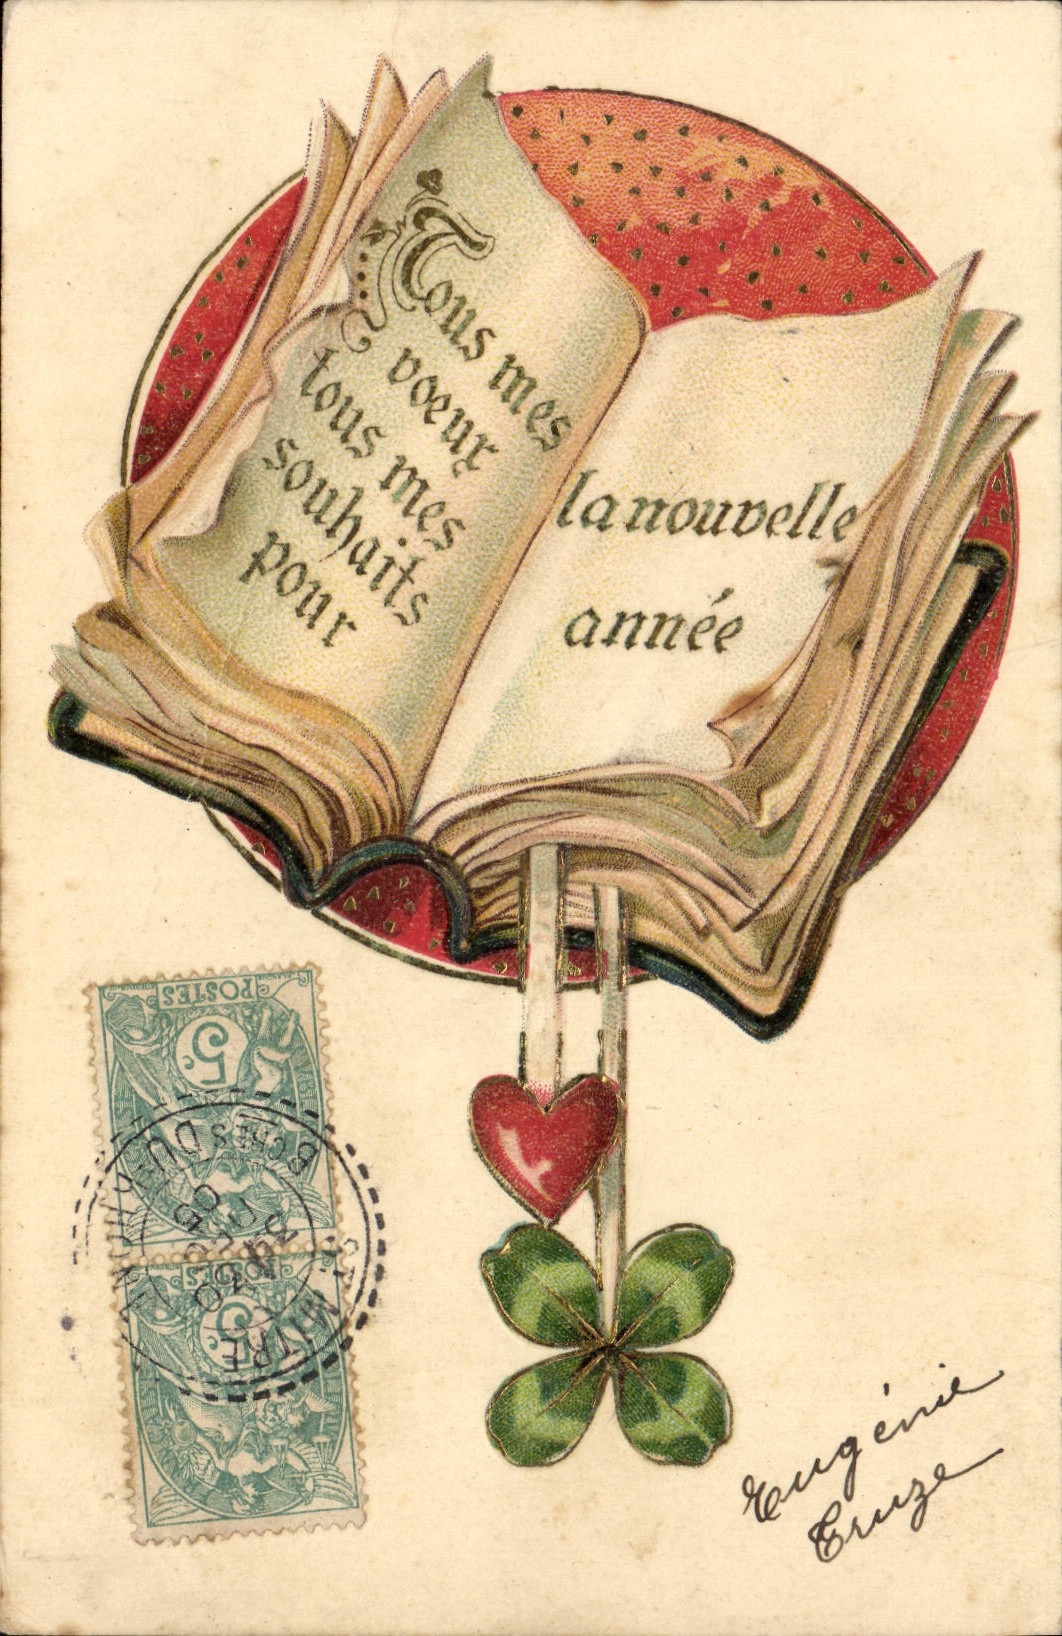 Tous mes
vœux
tous mes
souhaits
pour
la nouvelle
année
POSTES
5c
BCHES DU
POSTES
5c
Eugénie
Cruze